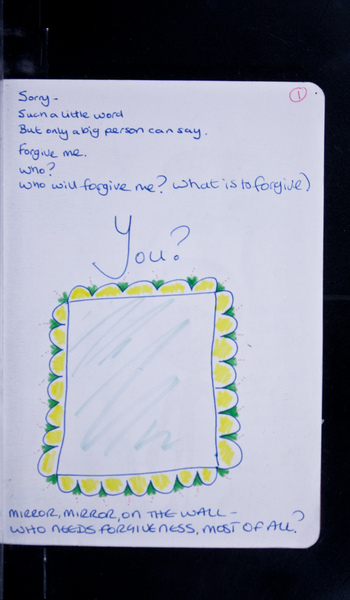 1
Sorry -
Such a little word
But only a big person can say.
Forgive me.
Who?
Who will forgive me? What is to forgive)
You?
MIRROR, MIRROR, ON THE WALL -
WHO NEEDS FORGIVENESS, MOST OF ALL?